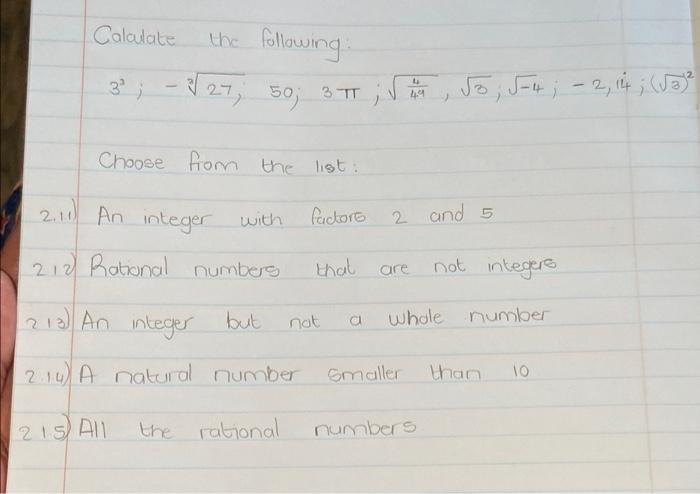 Calculate the following:
3³ ; - ∛27 ; 50 ; 3π ; √(4/49) , √3 ; √-4 ; - 2,14̇ ; (√3)²
Choose from the list :
2.11) An integer with factors 2 and 5
212) Rational numbers that are not integers
213) An integer but not a whole number
2.14) A natural number smaller than 10
215) All the rational numbers